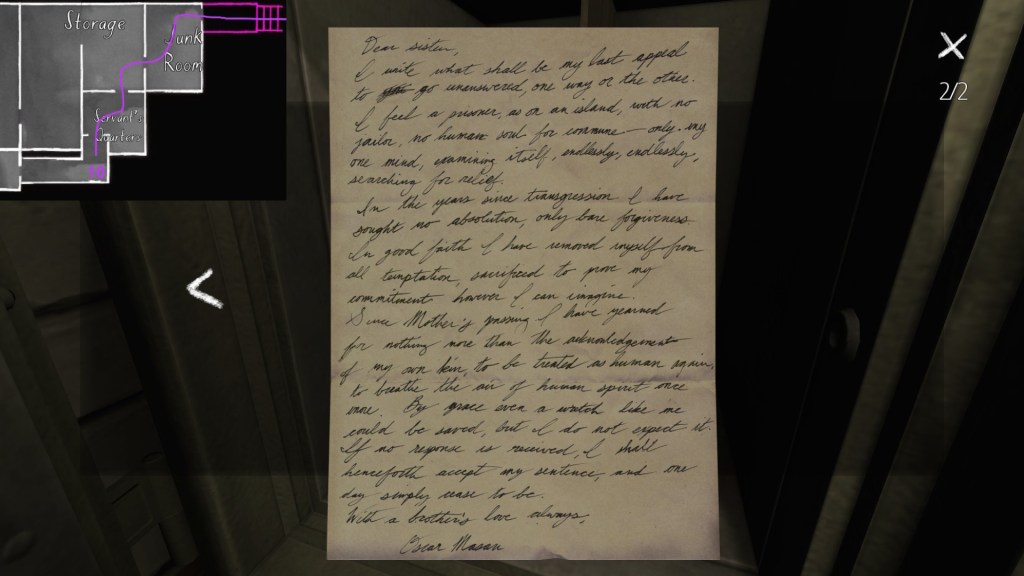 Storage
Junk
Room
Servant's
Quarters
2/2
Dear sister,
I write what shall be my last appeal
to go unanswered, one way or the other.
I feel a prisoner, as on an island, with no
jailor, no human soul for commune – only my
one mind, examining itself, endlessly, endlessly,
searching for relief.
In the years since transgression I have
sought no absolution, only bare forgiveness.
In good faith I have removed myself from
all temptation, sacrificed to prove my
commitment however I can imagine.
Since Mother's passing I have yearned
for nothing more than the acknowledgement
of my own kin, to be treated as human again,
to breathe the air of human spirit once
more. By grace even a wretch like me
could be saved, but I do not expect it.
If no reponse is received, I shall
henceforth accept my sentence, and one
day simply cease to be.
With a brother's love always,
Oscar Masan